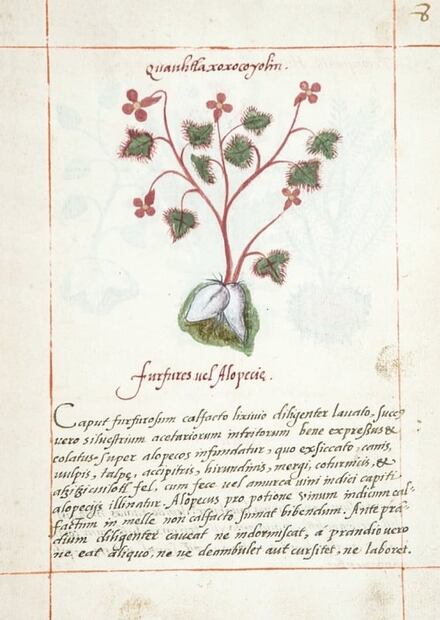 8
Quauhtlaxoxocoyolin.
furfures vel Alopecie.
Caput furfurosum calfacto lixivio diligenter lavato. Succꝰ
vero silvestrium acetariorum intritorum bene expressus &
colatus super alopecos infundatur, quo exsiccato, canis,
vulpis, talpę, accipitris, hirundinis, mergi, coturnicis, &
atzitzicuilotl fel, cum fece vel amurca vini indici capiti
alopecijs illinatur. Alopecus pro potione vinum indicum cal-
factum in melle non calfacto sumat bibendum. Ante pran-
dium diligenter caveat ne indormiscat, á prandio vero
ne eat aliquo, ne ve deambulet aut cursitet, ne laboret.